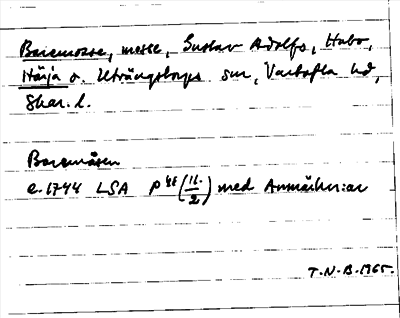 Baremosse, mosse, Gustav Adolfs, Habo,
Härja o. Utvängstorps snr, Vartofta hd,
Skar. l.
Baremåsen
e. 1744 LSA P 48 (11/2) med Anmärkn:ar
T.N.B. 1965.